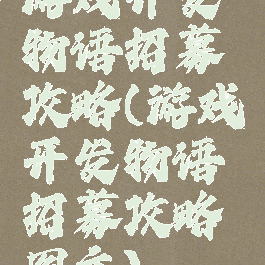 游戏开发
物语招募
攻略(游戏
开发物语
招募攻略